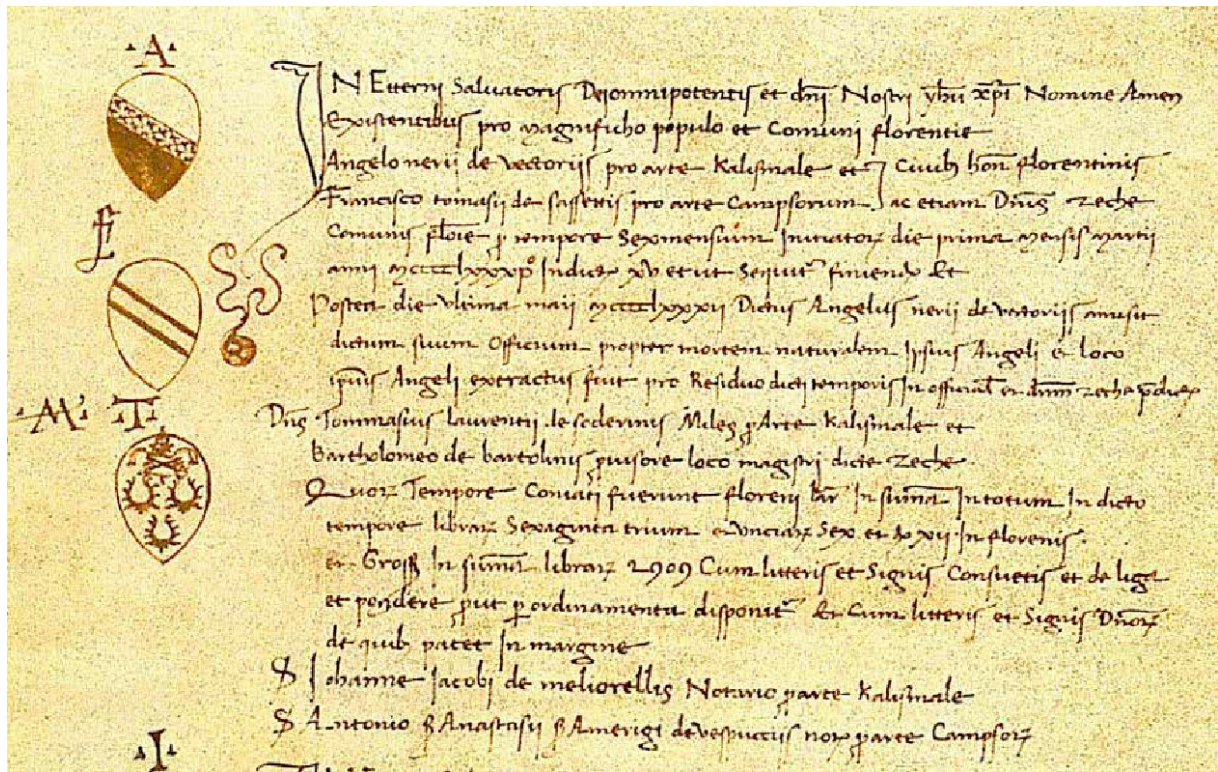 A
IN Etterni Salvatoris Dei omnipotentis et dñi Nostri yhū xp̄i Nomine Amen
Existentibus pro magnificho populo et Comuni florentie
Angelo nerii de vectoriis pro arte Kalismale et Civib hon florentinis
Francisco tomasii de sassettis pro arte Campsorum ac etiam Dñis zeche
f
Comunis flōie p tempore Sex mensium Initiatoꝝ die prima mensis martii
anni mcccclxxxpº Indict xv et ut Sequitr finiendo Et
Postea die ultima maii mcccclxxxii Dictus Angelus nerii de vectoriis amisit
dictum suum Officium propter mortem naturalem Ipsius Angeli et loco
ipsius Angeli extractus fuit pro Residuo dicti temporis In offitial et zeche
M T
Dñs Tommasius laurentii de soderinis Miles p Arte Kalismale et
Bartholomeo de bartolinis pvisore loco magistri dicte zeche
Quoꝝ Tempore Coniati fuerunt floreni In summa In totum In dicto
tempore libraꝝ Sexaginta trium et unciaꝝ Sex et xxii In florenis
et Gross In summa libraꝝ 2909 Cum litteris et Signis Consuetis et de liga
et pondere put p ordinamenta disponitr Et Cum litteris et Signis Dñoꝝ
de quib patet In margine
S Iohanne Iacobi de meliorellis Notario p arte Kalismale
S Antonio S Anastasii S Amerigi de vespucciis not p arte Campsoꝝ
I